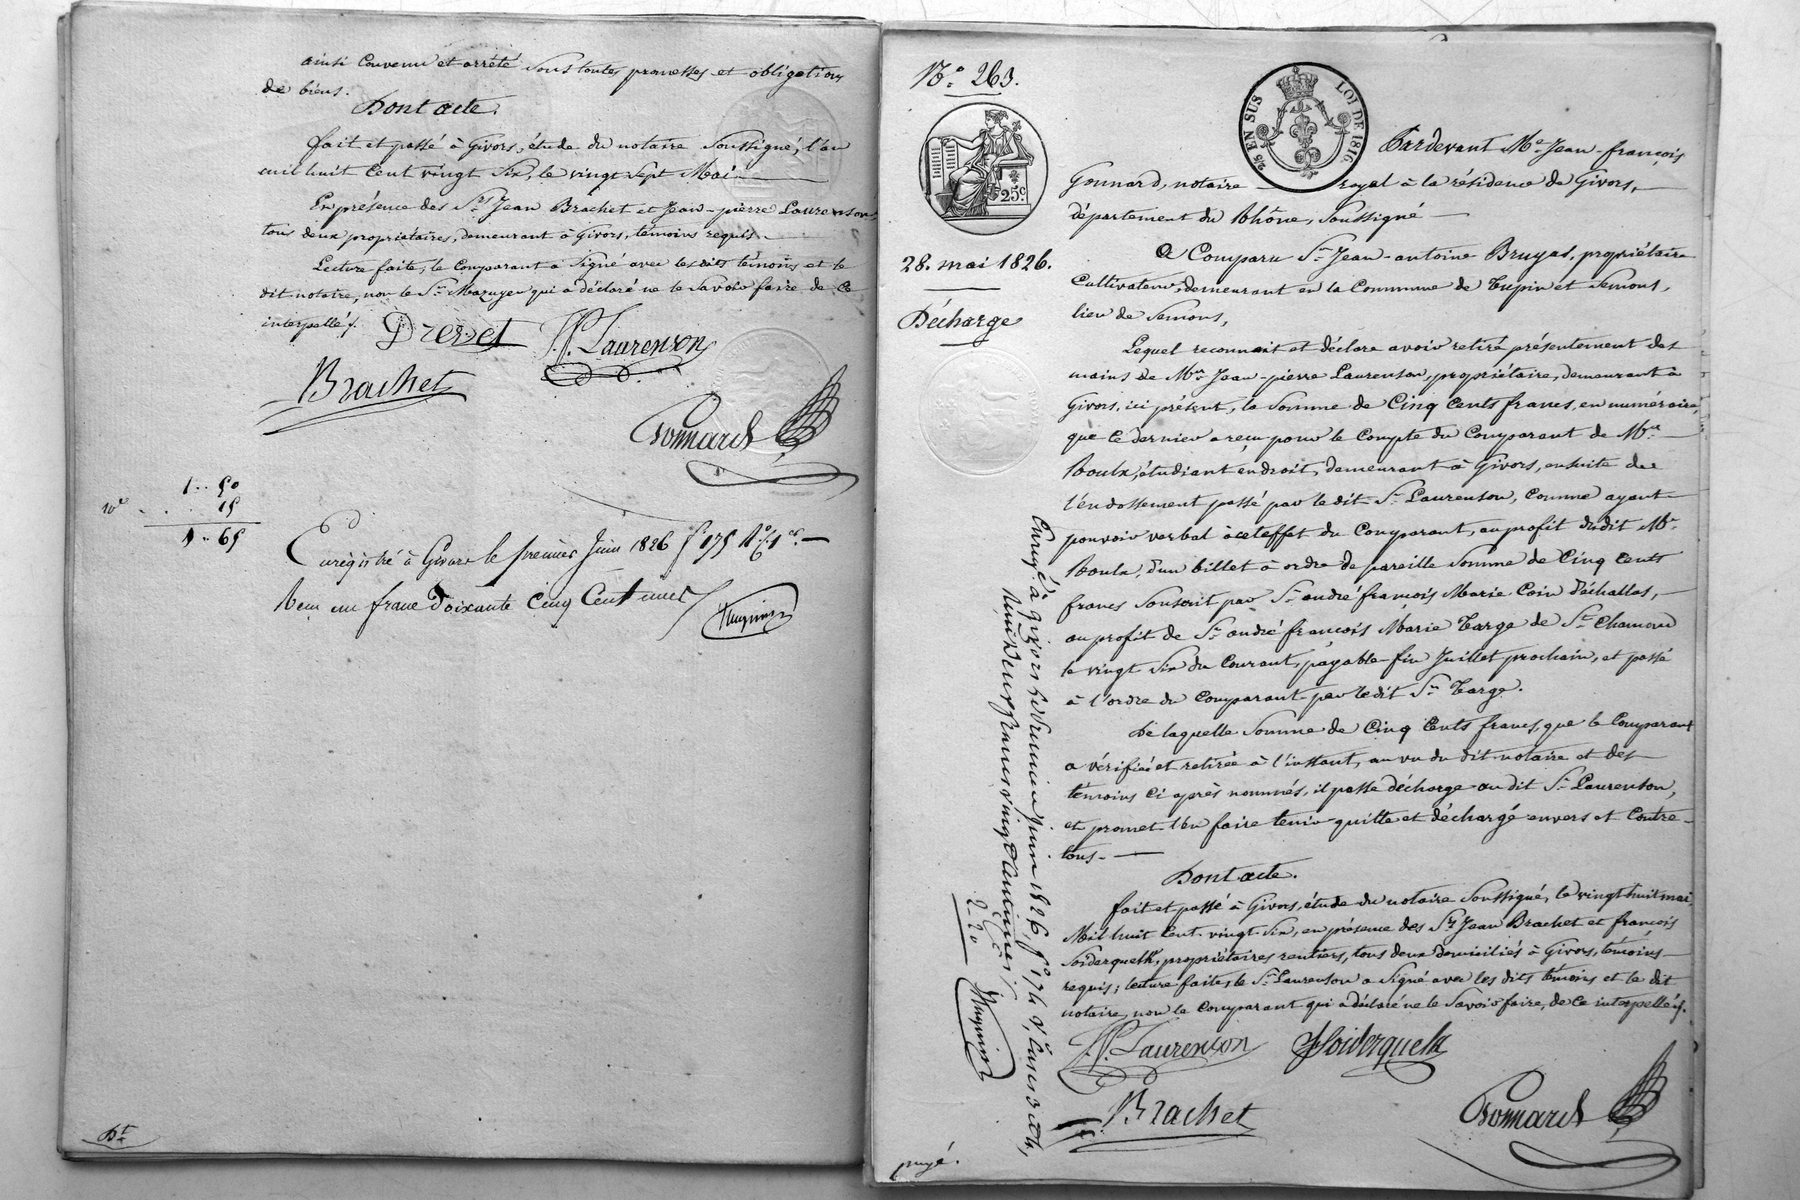 ainsi convenu et arrêté sous toutes promesses et obligations
de biens.
Dont acte.
fait et passé à Givors, étude du notaire soussigné, l'an
mil huit cent vingt six, le vingt sept Mai
En présence des Srs Jean Brachet et Jean-pierre Laurenson
tous deux propriétaires, demeurant à Givors, témoins requis.
Lecture faite, le comparant a signé avec les dits témoins et le
dit notaire, non le Sr. Mazuyer qui a déclaré ne le savoir faire de ce
interpellé.
Drevet J.P. Laurenson
Brachet
Gonnard
1.. 50
10e . . . 15
1.. 65
Enregistré à Givors le premier Juin 1826 fo 175
Reçu un franc soixante cinq centimes
Dt
No. 263.
25c.
25 EN SUS
LOI DE 1816
28. mai 1826.
Décharge
Pardevant Me. Jean-françois
Gonnard, notaire royal à la résidence de Givors,
département du Rhône, soussigné
A Comparu Sr. Jean-antoine Bruyas, propriétaire
cultivateur, demeurant en la Commune de Tupin et Semons,
lieu de Semons,
Lequel reconnait et déclare avoir retiré présentement des
mains de Mr. Jean-pierre Laurenson, propriétaire, demeurant à
Givors, ici présent, la somme de Cinq Cents francs, en numéraire,
que ce dernier a reçu pour le compte du Comparant de Mr.
Roulx, étudiant en droit, demeurant à Givors, ensuite de
l'endossement passé par le dit Sr. Laurenson, comme ayant
pouvoir verbal à cet effet du Comparant, au profit dudit Mr.
Roulx, d'un billet à ordre de pareille somme de Cinq Cents
francs souscrit par Sr. andré françois Marie Coin d'échallas,
au profit de Sr. andré françois Marie Targe de St. Chamond
le vingt six du courant, payable fin Juillet prochain, et passé
à l'ordre du comparant par le dit Sr. Targe.
De laquelle somme de Cinq Cents francs, que le Comparant
a vérifiée et retirée à l'instant, au vu du dit notaire et des
témoins ci après nommés, il passe décharge au dit Sr. Laurenson,
et promet l'en faire tenir quitte et déchargé envers et contre
tous.
Dont acte.
fait et passé à Givors, étude du notaire soussigné, le vingt huit mai
Mil huit cent vingt six, en présence des Srs Jean Brachet et françois
Soiderquelk, propriétaires rentiers, tous deux domiciliés à Givors, témoins
requis; lecture faite, le Sr. Laurenson a signé avec les dits témoins et le dit
notaire, non le comparant qui a déclaré ne le savoir faire, de ce interpellé.
J.P. Laurenson fSoiderquelk
Brachet Gonnard
Enregé. à Givors le premier juin 1826, fo 174
Reçu deux francs vingt centimes
2.20
payé.